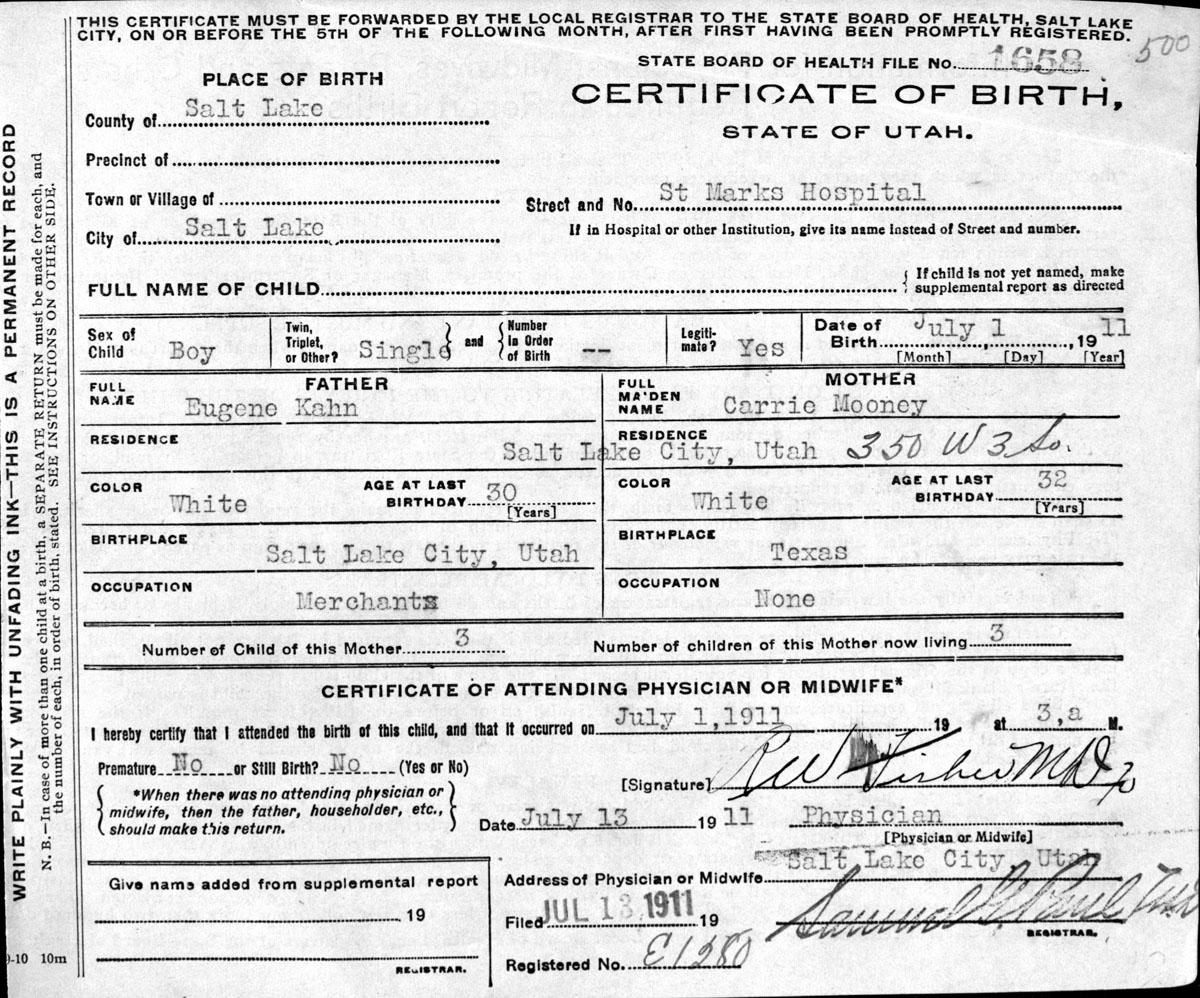 THIS CERTIFICATE MUST BE FORWARDED BY THE LOCAL REGISTRAR TO THE STATE BOARD OF HEALTH, SALT LAKE
CITY, ON OR BEFORE THE 5TH OF THE FOLLOWING MONTH, AFTER FIRST HAVING BEEN PROMPTLY REGISTERED.
500
STATE BOARD OF HEALTH FILE No. 1658
PLACE OF BIRTH
CERTIFICATE OF BIRTH,
STATE OF UTAH.
County of Salt Lake
Precinct of
Town or Village of
Street and No. St Marks Hospital
City of Salt Lake
If in Hospital or other Institution, give its name instead of Street and number.
FULL NAME OF CHILD
{ If child is not yet named, make
supplemental report as directed
Sex of Child Boy
Twin, Triplet, or Other? Single } and { Number In Order of Birth --
Legiti-mate? Yes
Date of Birth July 1, 1911
[Month] [Day] [Year]
FATHER
FULL NAME Eugene Kahn
MOTHER
FULL MAIDEN NAME Carrie Mooney
RESIDENCE
RESIDENCE
Salt Lake City, Utah 350 W 3 So.
COLOR White
AGE AT LAST BIRTHDAY 30
[Years]
COLOR White
AGE AT LAST BIRTHDAY 32
[Years]
BIRTHPLACE Salt Lake City, Utah
BIRTHPLACE Texas
OCCUPATION Merchants
OCCUPATION None
Number of Child of this Mother 3
Number of children of this Mother now living 3
CERTIFICATE OF ATTENDING PHYSICIAN OR MIDWIFE*
I hereby certify that I attended the birth of this child, and that it occurred on July 1,1911 19 at 3,a M.
Premature No or Still Birth? No (Yes or No)
[Signature] R W Fisher MD
{ *When there was no attending physician or
midwife, then the father, householder, etc.,
should make this return. }
Date July 13 1911 Physician
[Physician or Midwife]
Salt Lake City, Utah
Address of Physician or Midwife
Give name added from supplemental report
19
REGISTRAR.
Filed JUL 13 1911 19
Samuel G. Paul
REGISTRAR.
Registered No. E1280
9-10 10m
WRITE PLAINLY WITH UNFADING INK—THIS IS A PERMANENT RECORD
N. B.—In case of more than one child at a birth, a SEPARATE RETURN must be made for each, and
the number of each, in order of birth, stated. SEE INSTRUCTIONS ON OTHER SIDE.